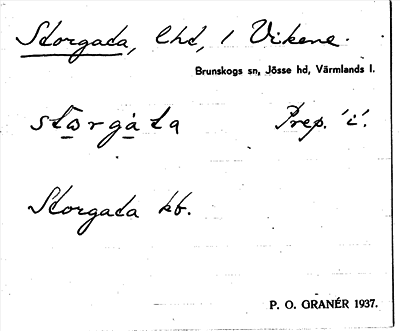 Storgada, lhd, / Vikene.
Brunskogs sn, Jösse hd, Värmlands l.
stωrgàta Prep. 'i'.
Storgada kb.
P. O. GRANÉR 1937.